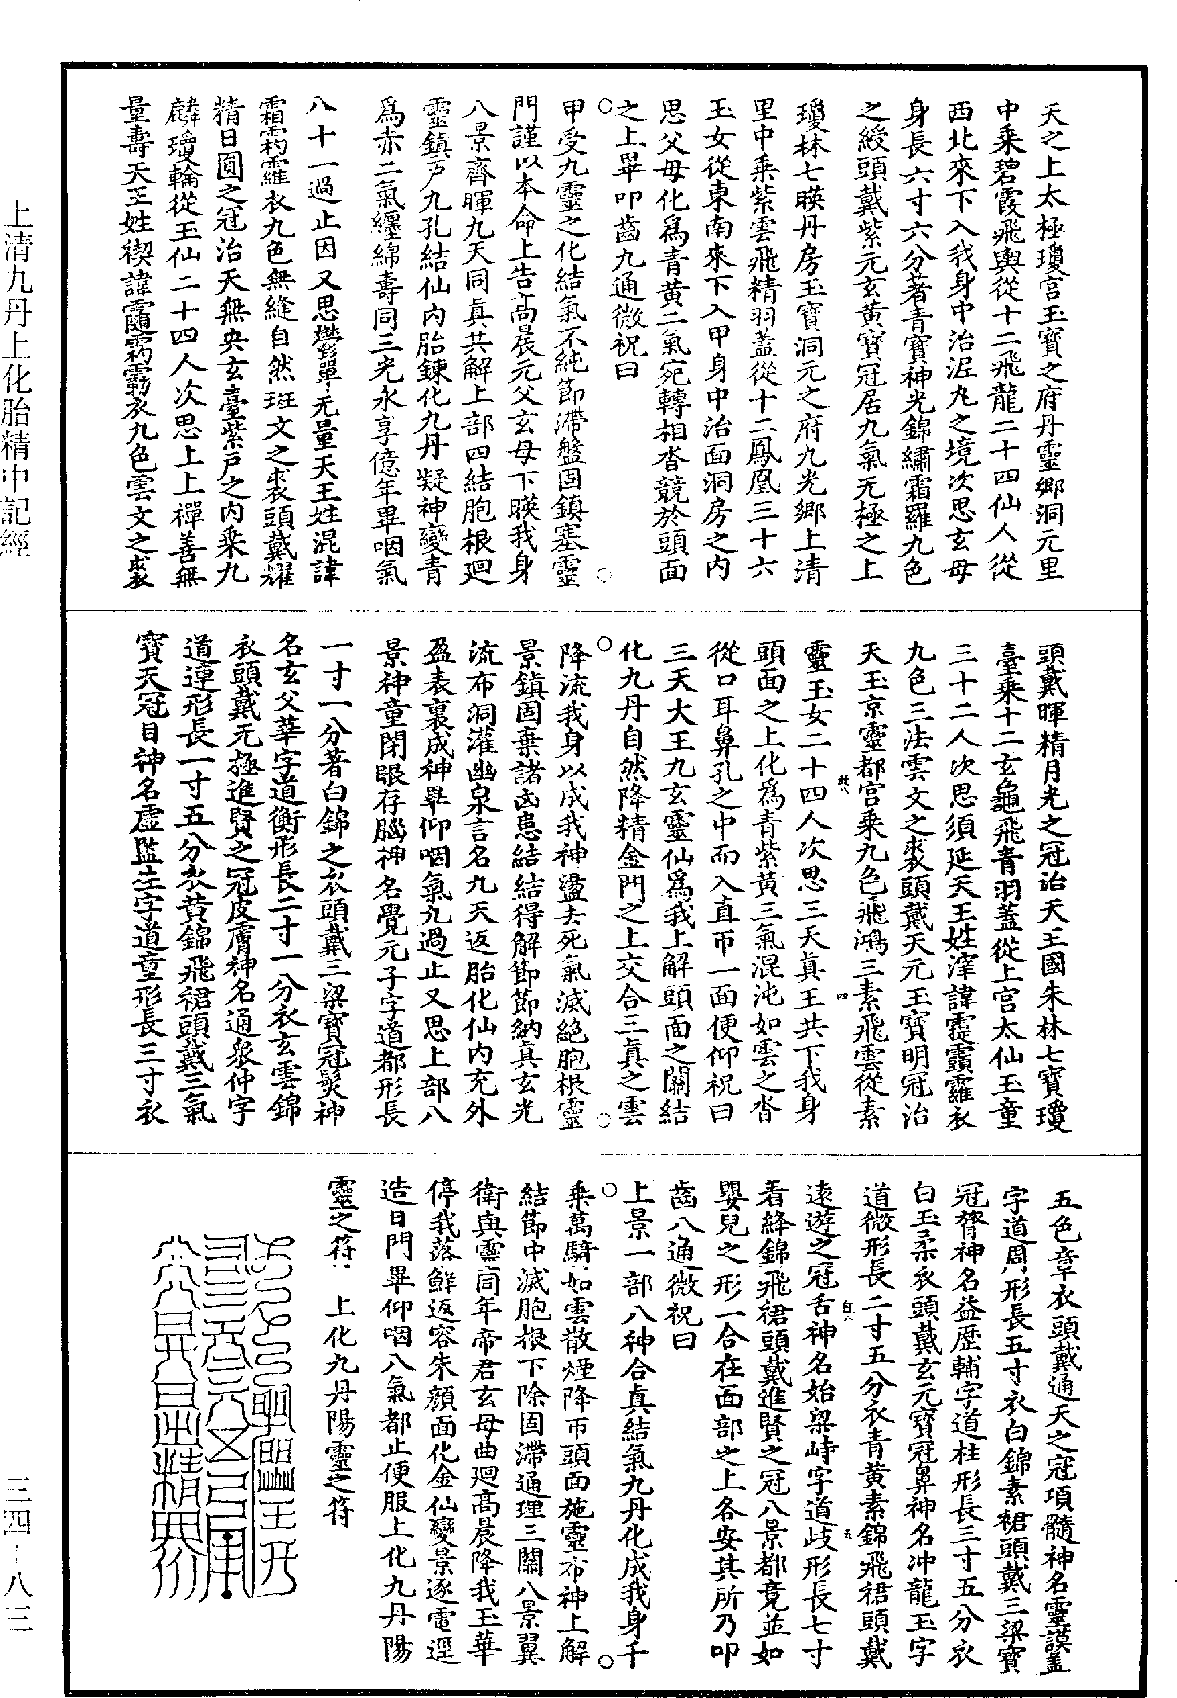 天之上太極瓊宮玉寶之府丹靈鄉洞元里
中乘碧霞飛輿從十二飛龍二十四仙人從
西北來下入我身中治泥丸之境次思玄母
身長六寸六分著青寶神光錦繡霜羅九色
之綬頭戴紫元玄黃寶冠居九氣无極之上
瓊林七暎丹房玉寶洞元之府九光鄉上清
里中乘紫雲飛精羽蓋從十二鳳凰三十六
玉女從東南來下入甲身中治面洞房之內
思父母化為青黃二氣宛轉相沓競於頭面
之上畢叩齒九通微祝曰
甲受九靈之化結氣不純節滯盤固鎮塞靈
門謹以本命上告高晨元父玄母下暎我身
八景齊暉九天同真共解上部四結胞根迴
靈鎮戶九孔結仙內胎鍊化九丹凝神變青
為赤二氣纏綿壽同三光永享億年畢咽氣
八十一過止因又思鬱單无量天王姓混諱
霜羅衣九色無縫自然斑文之裘頭戴耀
精日圓之冠治天無央玄臺紫戶之內乘九
麟瓊輪從玉仙二十四人次思上上禪善無
量壽天王姓禊諱衣九色雲文之裘
頭戴暉精月光之冠治天王國朱林七寶瓊
臺乘十二玄龜飛青羽蓋從上宮太仙玉童
三十二人次思須延天王姓滓諱羅衣
九色三法雲文之裘頭戴天元玉寶明冠治
天玉京靈都宮乘九色飛鴻三素飛雲從素
靈玉女二十四人次思三天真王共下我身
頭面之上化為青紫黃三氣混沌如雲之沓
從口耳鼻孔之中而入直帀一面便仰祝曰
三天大王九玄靈仙為我上解頭面之關結
化九丹自然降精金門之上交合三真之雲
降流我身以成我神盪去死氣滅絕胞根靈
景鎮固棄諸凶患結結得解節節納真玄光
流布洞灌幽泉言名九天返胎化仙內充外
盈表裏成神畢仰咽氣九過止又思上部八
景神童閉眼存腦神名覺元子字道都形長
一寸一分著白錦之衣頭戴三梁寶冠髮神
名玄父華字道衡形長二寸一分衣玄雲錦
衣頭戴无極進賢之冠皮膚神名通眾仲字
道連形長一寸五分衣黃錦飛裙頭戴三氣
寶天冠目神名虛監生字道童形長三寸衣
五色章衣頭戴通天之冠項髓神名靈謨蓋
字道周形長五寸衣白錦素裙頭戴三梁寶
冠膂神名益歷輔字道柱形長三寸五分衣
白玉柔衣頭戴玄元寶冠鼻神名沖龍玉字
道微形長二寸五分衣青黃素錦飛裙頭戴
遠遊之冠舌神名始梁峙字道歧形長七寸
著絳錦飛裙頭戴進賢之冠八景都竟並如
嬰兒之形一合在面部之上各安其所乃叩
齒八通微祝曰
上景一部八神合真結氣九丹化成我身千
乘萬騎如雲散煙降帀頭面施靈布神上解
結節中滅胞根下除固滯通理三關八景翼
衛與靈同年帝君玄母曲迴高晨降我玉華
停我落鮮返容朱顏面化金仙變景逐電逕
造日門畢仰咽八氣都止便服上化九丹陽
靈之符　上化九丹陽靈之符
上清九丹上化胎精中記經
三四—八三